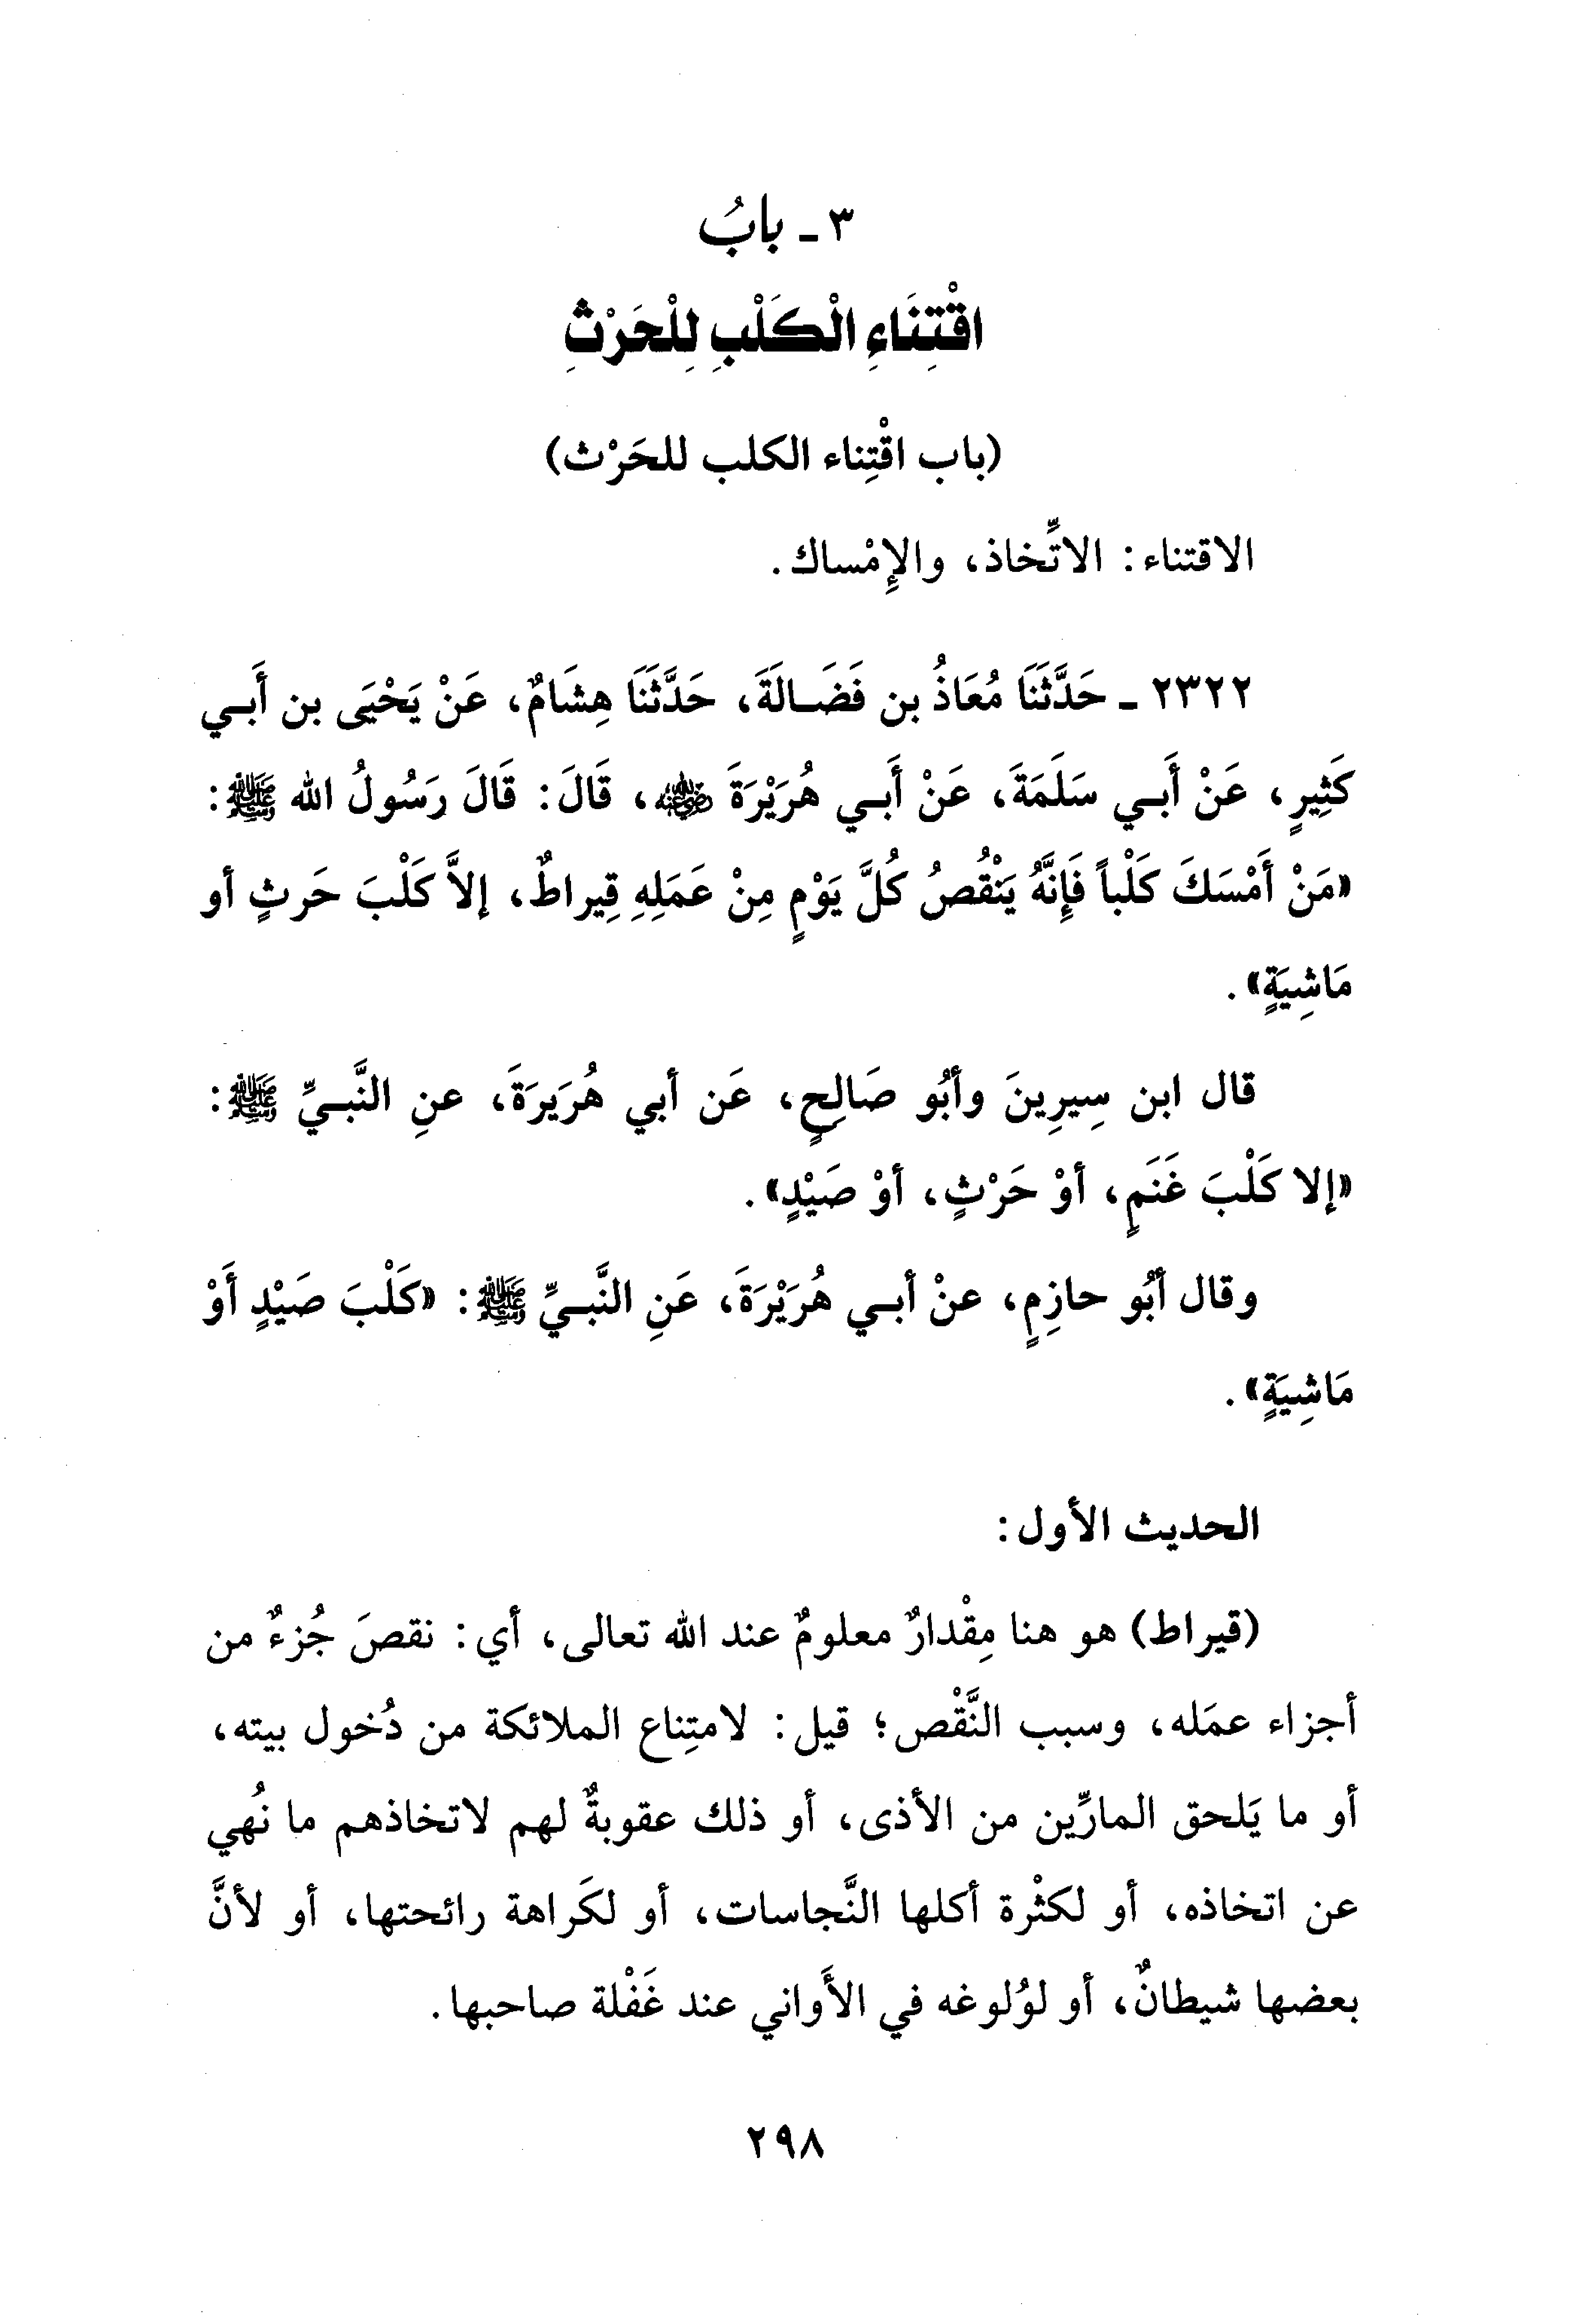 ٣ - بابُ
اقْتِنَاءِ الْكَلْبِ لِلْحَرْثِ
(باب اقْتِناء الكلب للحَرْث)
الاقتناء: الاتِّخاذ، والإِمْساك.
٢٣٢٢ - حَدَّثَنَا مُعَاذُ بن فَضَالَةَ، حَدَّثَنَا هِشَامٌ، عَنْ يَحْيَى بن أَبي
كَثِيرٍ، عَنْ أَبي سَلَمَةَ، عَنْ أَبي هُرَيْرَةَ رضي الله عنه، قَالَ: قَالَ رَسُولُ الله ﷺ:
«مَنْ أَمْسَكَ كَلْباً فَإِنَّهُ يَنْقُصُ كُلَّ يَوْمٍ مِنْ عَمَلِهِ قِيراطٌ، إلاَّ كَلْبَ حَرثٍ أو
مَاشِيَةٍ».
قال ابن سِيرِينَ وأبُو صَالِحٍ، عَن أبي هُرَيرَةَ، عنِ النَّبيِّ ﷺ:
«إلا كَلْبَ غَنَمٍ، أوْ حَرْثٍ، أوْ صَيْدٍ».
وقال أبُو حازِمٍ، عنْ أبي هُرَيْرَةَ، عَنِ النَّبيِّ ﷺ: «كَلْبَ صَيْدٍ أَوْ
مَاشِيَةٍ».
الحديث الأول:
(قيراط) هو هنا مِقْدارٌ معلومٌ عند الله تعالى، أي: نقصَ جُزءٌ من
أجزاء عمَله، وسبب النَّقْص؛ قيل: لامتِناع الملائكة من دُخول بيته،
أو ما يَلحق المارِّين من الأذى، أو ذلك عقوبةٌ لهم لاتخاذهم ما نُهي
عن اتخاذه، أو لكثْرة أكلها النَّجاسات، أو لكَراهة رائحتها، أو لأنَّ
بعضها شيطانٌ، أو لوُلوغه في الأَواني عند غَفْلة صاحبها.
٢٩٨